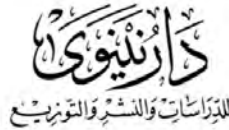 دَارُ نِينَوَى
لِلدِّرَاسَاتِ وَالنَّشْرِ وَالتَّوْزِيع